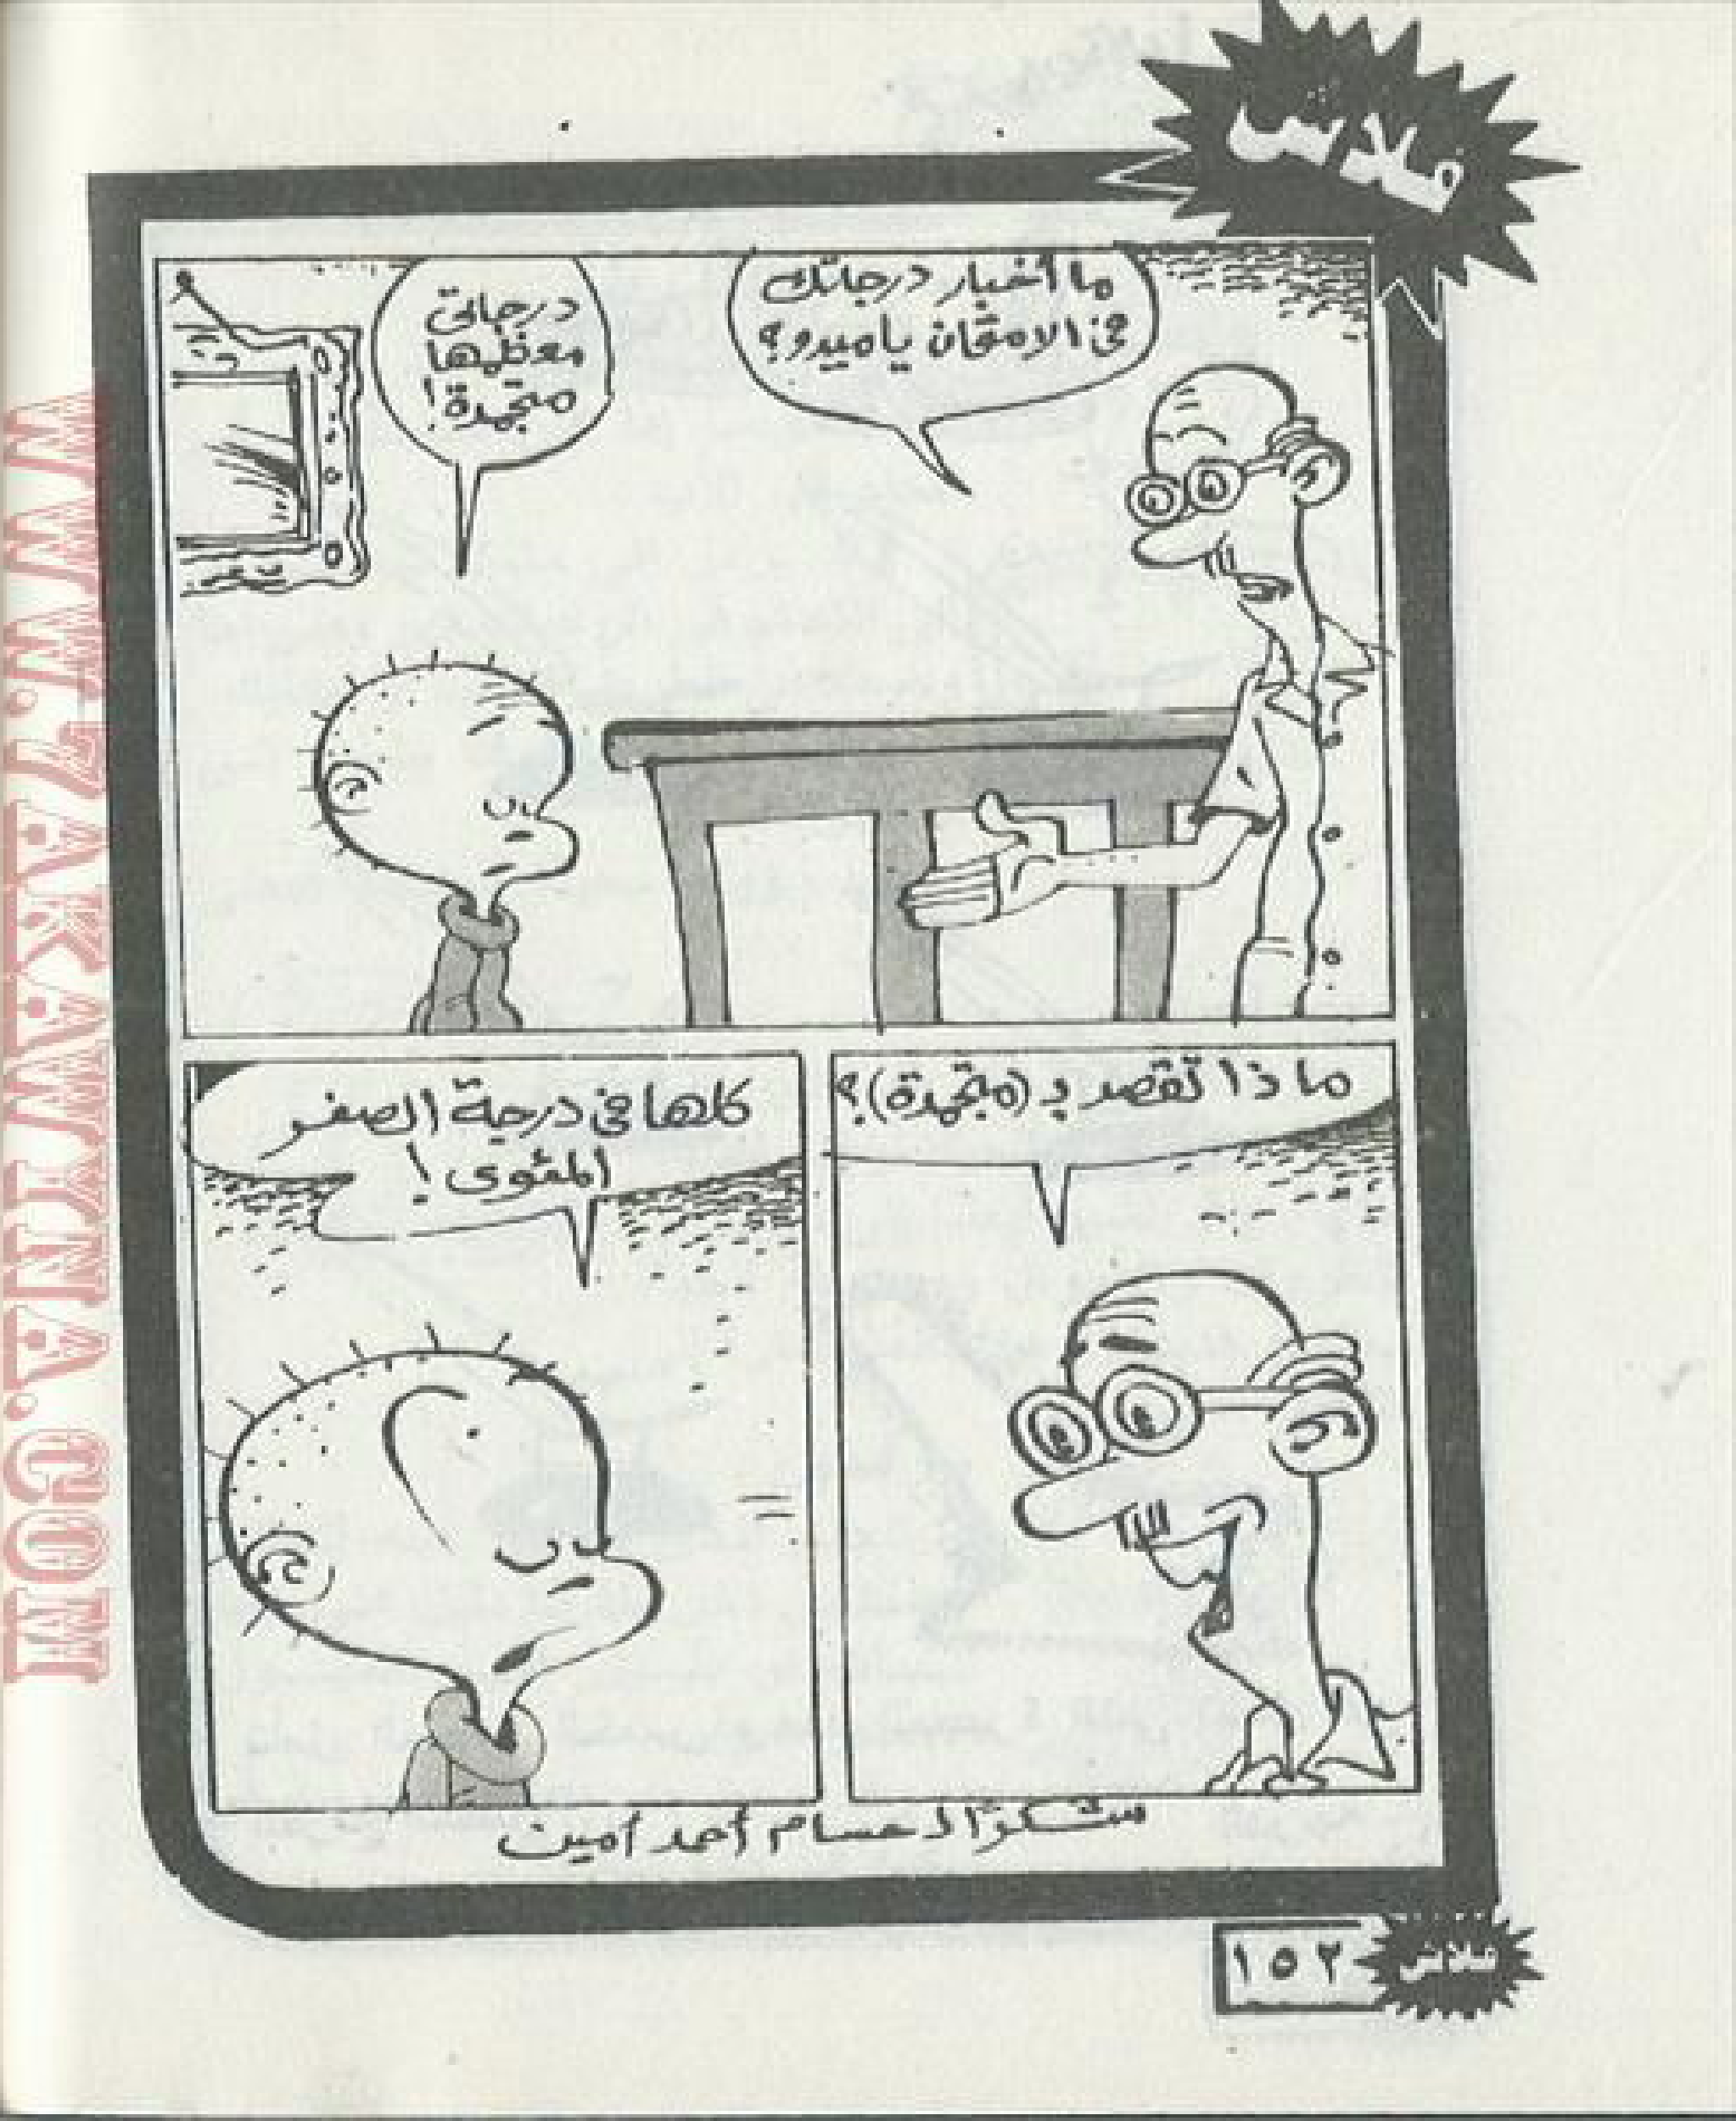 فلاش
ما أخبار درجاتك
في الامتحان يا ميدو؟
درجاتى
معظمها
متجمدة!
ماذا تقصد بـ (متجمدة)؟
كلها في درجة الصفر
المئوى!
شكرًا لـ حسام أحمد أمين
١٥٢
فلاش
WWW.7AKAWINA.COM